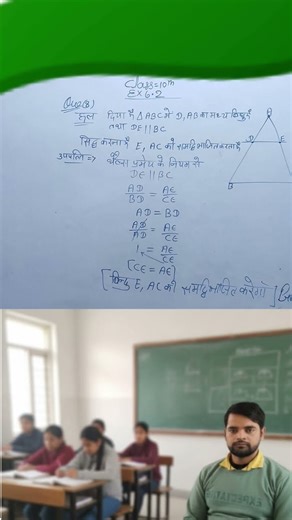 Class=10th
EX 6.2
Que(8)
हल दिया है △ABC में D, AB का मध्य बिन्दु है
तथा DE||BC
सिद्ध करना है E, AC को समद्विभाजित करता है
उपपत्ति => थेल्स प्रमेय के नियम से
DE||BC
AD/BD = AE/CE
AD = BD
AD/AD = AE/CE
1 = AE/CE
[CE = AE]
[बिन्दु E, AC को समद्विभाजित करेगा]
A
D E
B